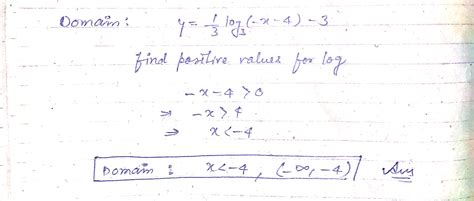 Domain: y = 1/3 log₃(-x-4) - 3
find positive values for log
-x-4 > 0
⇒ -x > 4
⇒ x < -4
Domain : x < -4 , (-∞, -4) Ans